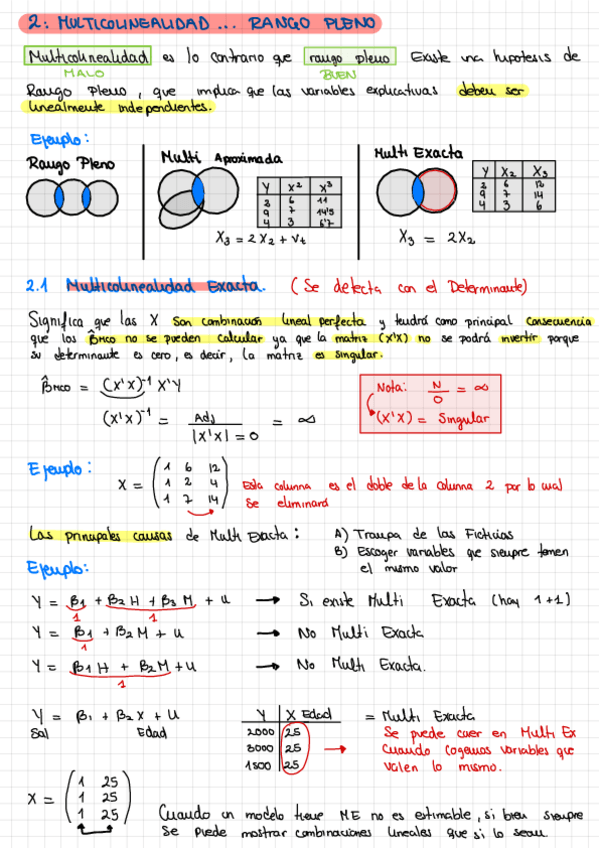 2: MULTICOLINEALIDAD ... RANGO PLENO
Multicolinealidad es lo contrario que rango pleno Existe una hipotesis de
MALO BUEN
Rango Pleno, que implica que las variables explicativas deben ser
linealmente independientes.
Ejemplo:
Rango Pleno
Multi Aproximada
Y X2 X3
2 6 11
9 7 14'5
4 3 6'7
X3 = 2X2 + Vt
Multi Exacta
Y X2 X3
2 6 12
9 7 14
4 3 6
X3 = 2X2
2.1 Multicolinealidad Exacta. (Se detecta con el Determinante)
Significa que las X son combinación lineal perfecta y tendrá como principal consecuencia
que los β̂mco no se pueden calcular ya que la matriz (X'X) no se podrá invertir porque
su determinante es cero, es decir, la matriz es singular.
β̂mco = (X'X)-1 X'Y
(X'X)-1 = Adj / |X'X| = 0 = ∞
Nota: N/0 = ∞
(X'X) = Singular
Ejemplo:
X =
1 6 12
1 2 4
1 7 14
Esta columna es el doble de la columna 2 por lo cual
se eliminará
Las principales causas de Multi Exacta:
A) Trampa de las Ficticias
B) Escoger variables que siempre tomen
el mismo valor
Ejemplo:
Y = β1 + β2 H + β3 M + u → Si existe Multi Exacta (hay 1+1)
1 1
Y = β1 + β2 M + u → No Multi Exacta
1
Y = β1 H + β2 M + u → No Multi Exacta.
1
Y = β1 + β2 X + u
Sal Edad
Y X Edad
2000 25
3000 25
1500 25
= Multi Exacta
Se puede caer en Multi Ex
Cuando cogemos variables que
valen lo mismo.
X =
1 25
1 25
1 25
Cuando un modelo tiene ME no es estimable, si bien siempre
Se puede mostrar combinaciones lineales que si lo sean.